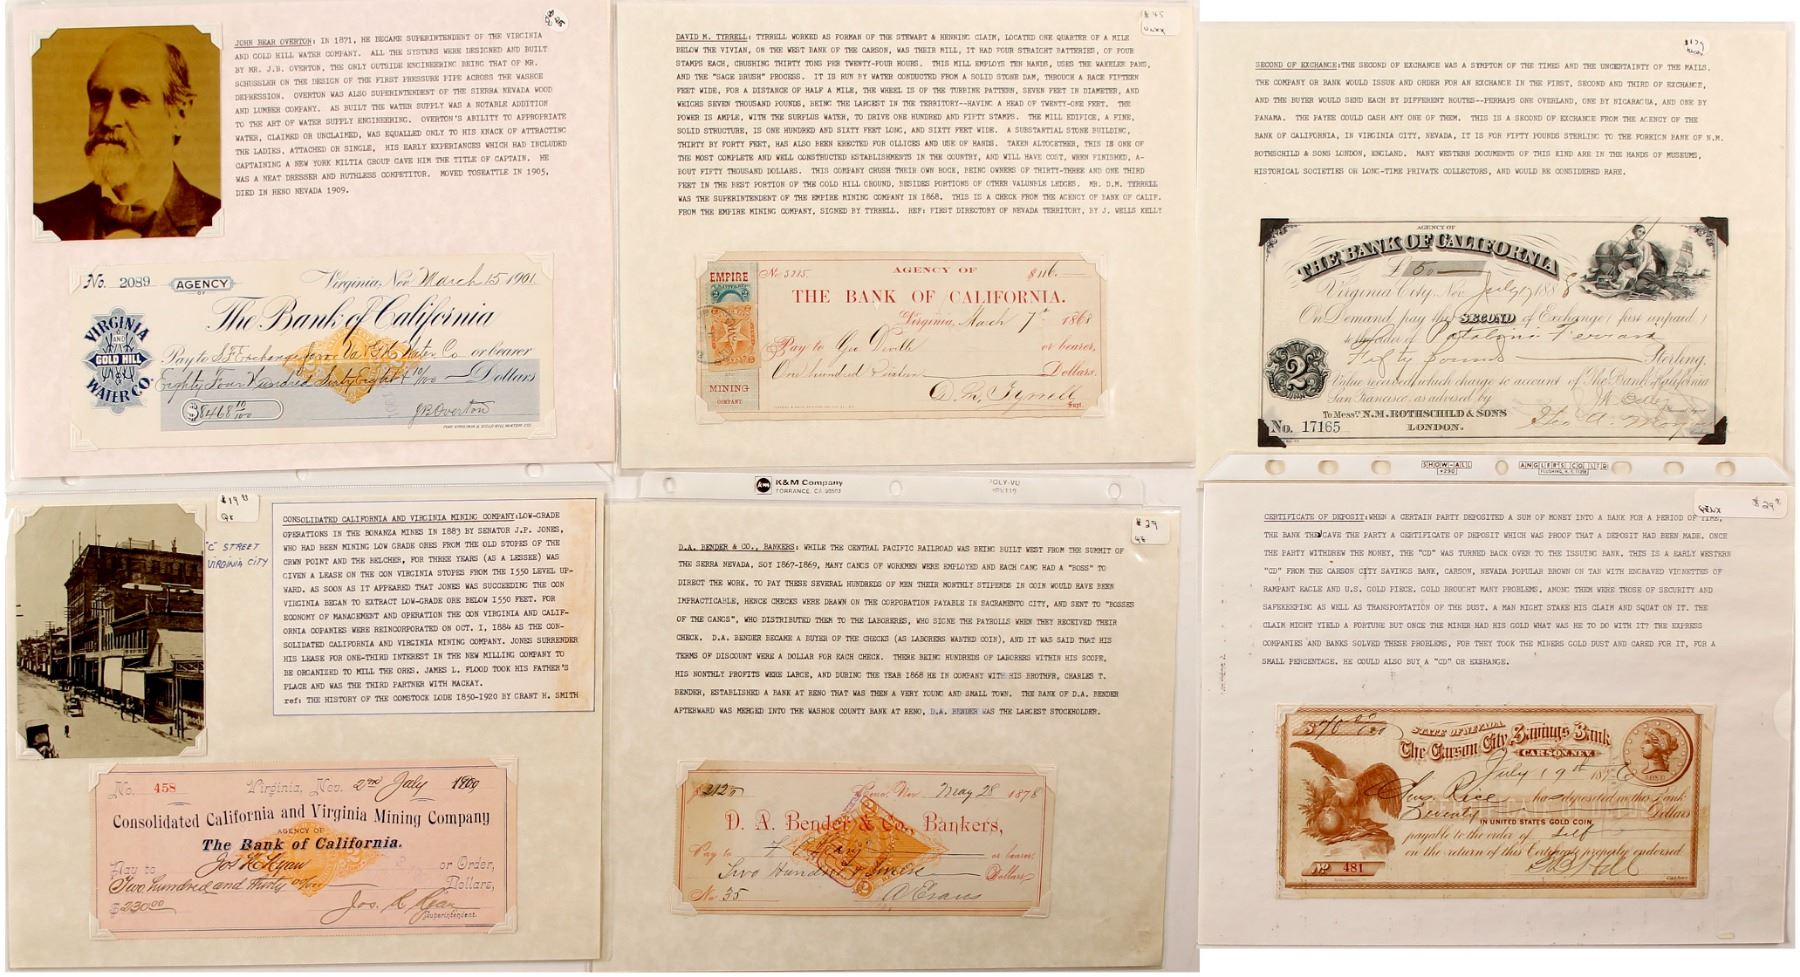 JOHN BEAR OVERTON: IN 1871, HE BECAME SUPERINTENDENT OF THE VIRGINIA
AND GOLD HILL WATER COMPANY. ALL THE SYSTEMS WERE DESIGNED AND BUILT
BY MR. J.B. OVERTON, THE ONLY OUTSIDE ENGINEERING BEING THAT OF MR.
SCHUSSLER ON THE DESIGN OF THE FIRST PRESSURE PIPE ACROSS THE WASHOE
DEPRESSION. OVERTON WAS ALSO SUPERINTENDENT OF THE SIERRA NEVADA WOOD
AND LUMBER COMPANY. AS BUILT THE WATER SUPPLY WAS A NOTABLE ADDITION
TO THE ART OF WATER SUPPLY ENGINEERING. OVERTON'S ABILITY TO APPROPRIATE
WATER, CLAIMED OR UNCLAIMED, WAS EQUALLED ONLY TO HIS KNACK OF ATTRACTING
THE LADIES, ATTACHED OR SINGLE, HIS EARLY EXPERIANCES WHICH HAD INCLUDED
CAPTAINING A NEW YORK MILTIA GROUP GAVE HIM THE TITLE OF CAPTAIN. HE
WAS A NEAT DRESSER AND RUTHLESS COMPETITOR. MOVED TOSEATTLE IN 1905,
DIED IN RENO NEVADA 1909.
No. 2089 AGENCY OF Virginia, Nev March 15 1901
The Bank of California
VIRGINIA AND GOLD HILL WATER CO.
Pay to S.F. Exchange for Va & G.H. Water Co or bearer
Eighty Four Hundred Sixty Eight & 10/100 Dollars
$8468 10/100 JB Overton
THE VIRGINIA & GOLD HILL WATER CO.
$45
DAVID M. TYRRELL: TYRRELL WORKED AS FORMAN OF THE STEWART & HENNING CLAIM, LOCATED ONE QUARTER OF A MILE
BELOW THE VIVIAN, ON THE WEST BANK OF THE CARSON, WAS THEIR MILL, IT HAD FOUR STRAIGHT BATTERIES, OF FOUR
STAMPS EACH, CRUSHING THIRTY TONS PER TWENTY-FOUR HOURS. THIS MILL EMPLOYS TEN HANDS, USES THE WAKELEE PANS,
AND THE "SAGE BRUSH" PROCESS. IT IS RUN BY WATER CONDUCTED FROM A SOLID STONE DAM, THROUCH A RACE FIFTEEN
FEET WIDE, FOR A DISTANCE OF HALF A MILE, THE WHEEL IS OF THE TURBINE PATTERN, SEVEN FEET IN DIAMETER, AND
WEIGHS SEVEN THOUSAND POUNDS, BEING THE LARGEST IN THE TERRITORY--HAVING A HEAD OF TWENTY-ONE FEET. THE
POWER IS AMPLE, WITH THE SURPLUS WATER, TO DRIVE ONE HUNDRED AND FIFTY STAMPS. THE MILL EDIFICE, A FINE,
SOLID STRUCTURE, IS ONE HUNDRED AND SIXTY FEET LONG, AND SIXTY FEET WIDE. A SUBSTANTIAL STONE BUILDING,
THIRTY BY FORTY FEET, HAS ALSO BEEN ERECTED FOR OLLICES AND USE OF HANDS. TAKEN ALTOCETHER, THIS IS ONE OF
THE MOST COMPLETE AND WELL CONSTRUCTED ESTABLISHMENTS IN THE COUNTRY, AND WILL HAVE COST, WHEN FINISHED, A-
BOUT FIFTY THOUSAND DOLLARS. THIS COMPANY CRUSH THEIR OWN ROCK, BEING OWNERS OF THIRTY-THREE AND ONE THIRD
FEET IN THE BEST PORTION OF THE GOLD HILL GROUND, BESIDES PORTIONS OF OTHER VALUNBLE LEDGES. MR. D.M. TYRRELL
WAS THE SUPERINTENDENT OF THE EMPIRE MINING COMPANY IN 1868. THIS IS A CHECK FROM THE AGENCY OF BANK OF CALIF.
FROM THE EMPIRE MINING COMPANY, SIGNED BY TYRRELL. REF: FIRST DIRECTORY OF NEVADA TERRITORY, BY J. WELLS KELLY
EMPIRE No 3215 AGENCY OF $116.
THE BANK OF CALIFORNIA.
Virginia, March 7th 1868
Pay to Geo Deville or bearer,
One hundred Sixteen Dollars.
MINING COMPANY Supt.
SECOND OF EXCHANGE:THE SECOND OF EXCHANGE WAS A SYMPTOM OF THE TIMES AND THE UNCERTAINTY OF THE MAILS.
THE COMPANY OR BANK WOULD ISSUE AND ORDER FOR AN EXCHANGE IN THE FIRST, SECOND AND THIRD OF EXCHANGE,
AND THE BUYER WOULD SEND EACH BY DIFFERENT ROUTES--PERHAPS ONE OVERLAND, ONE BY NICARAGUA, AND ONE BY
PANAMA. THE PAYEE COULD CASH ANY ONE OF THEM. THIS IS A SECOND OF EXCHANGE FROM THE AGENCY OF THE
BANK OF CALIFORNIA, IN VIRGINIA CITY, NEVADA, IT IS FOR FIFTY POUNDS STERLING TO THE FOREIGN BANK OF N.M.
ROTHSCHILD & SONS LONDON, ENGLAND. MANY WESTERN DOCUMENTS OF THIS KIND ARE IN THE HANDS OF MUSEUMS,
HISTORICAL SOCIETIES OR LONG-TIME PRIVATE COLLECTORS, AND WOULD BE CONSIDERED RARE.
AGENCY OF
THE BANK OF CALIFORNIA
£ 50
Virginia City, Nev. July 17 1888
On Demand pay this SECOND of Exchange (first unpaid)
to the order of
Fifty pounds Sterling.
Value received which charge to account of The Bank of California
San Francisco as advised by
To Messrs N.M. ROTHSCHILD & SONS
LONDON.
No. 17165
2
SHOW-ALL ANGLERS CO LTD
K&M Company
TORRANCE, CA 90503
POLY-VU
$19
"C" STREET
VIRGINIA CITY
CONSOLIDATED CALIFORNIA AND VIRGINIA MINING COMPANY:LOW-GRADE
OPERATIONS IN THE BONANZA MINES IN 1883 BY SENATOR J.P. JONES,
WHO HAD BEEN MINING LOW GRADE ORES FROM THE OLD STOPES OF THE
CRWN POINT AND THE BELCHER, FOR THREE YEARS (AS A LESSEE) WAS
GIVEN A LEASE ON THE CON VIRGINIA STOPES FROM THE 1550 LEVEL UP-
WARD. AS SOON AS IT APPEARED THAT JONES WAS SUCCEEDING THE CON
VIRGINIA BEGAN TO EXTRACT LOW-GRADE ORE BELOW 1550 FEET. FOR
ECONOMY OF MANAGEMENT AND OPERATION THE CON VIRGINIA AND CALIF-
ORNIA COPANIES WERE REINCORPORATED ON OCT. 1, 1884 AS THE CON-
SOLIDATED CALIFORNIA AND VIRGINIA MINING COMPANY. JONES SURRENDER
HIS LEASE FOR ONE-THIRD INTEREST IN THE NEW MILLING COMPANY TO
BE ORGANIZED TO MILL THE ORES. JAMES L. FLOOD TOOK HIS FATHER'S
PLACE AND WAS THE THIRD PARTNER WITH MACKAY.
ref: THE HISTORY OF THE COMSTOCK LODE 1850-1920 BY GRANT H. SMITH
No. 458 Virginia, Nev. 2nd July
Consolidated California and Virginia Mining Company
AGENCY OF
The Bank of California.
Pay to or Order,
Two hundred and thirty Dollars,
$230.00
Superintendent.
$29
D.A. BENDER & CO., BANKERS: WHILE THE CENTRAL PACIFIC RAILROAD WAS BEING BUILT WEST FROM THE SUMMIT OF
THE SERRA NEVADA, SOY 1867-1869, MANY CANGS OF WORKMEN WERE EMPLOYED AND EACH CANG HAD A "BOSS" TO
DIRECT THE WORK. TO PAY THESE SEVERAL HUNDREDS OF MEN THEIR MONTHLY STIPENDS IN COIN WOULD HAVE BEEN
IMPRACTICABLE, HENCE CHECKS WERE DRAWN ON THE CORPORATION PAYABLE IN SACRAMENTO CITY, AND SENT TO "BOSSES
OF THE CANGS", WHO DISTRIBUTED THEM TO THE LABORERES, WHO SIGNE THE PAYROLLS WHEN THEY RECEIVED THEIR
CHECK. D.A. BENDER BECAME A BUYER OF THE CHECKS (AS LABORERS WANTED COIN), AND IT WAS SAID THAT HIS
TERMS OF DISCOUNT WERE A DOLLAR FOR EACH CHECK. THERE BEING HUNDREDS OF LABORERS WITHIN HIS SCOPE,
HIS NONTHLY PROFITS WERE LARGE, AND DURING THE YEAR 1868 HE IN COMPANY WITH HIS BROTHFR, CHARLES T.
BENDER, ESTABLISHED A BANK AT RENO THAT WAS THEN A VERY YOUNG AND SMALL TOWN. THE BANK OF D.A. BENDER
AFTERWARD WAS MERGED INTO THE WASHOE COUNTY BANK AT RENO, D.A. BENDER WAS THE LARGEST STOCKHOLDER.
$212.00 Reno, Nev. May 28 1878
D. A. Bender & Co., Bankers,
Pay to or bearer
Two Hundred & Twelve Dollars
No 35 Evans
$29
CERTIFICATE OF DEPOSIT:WHEN A CERTAIN PARTY DEPOSITED A SUM OF MONEY INTO A BANK FOR A PERIOD OF TIME,
THE BANK THEN GAVE THE PARTY A CERTIFICATE OF DEPOSIT WHICH WAS PROOF THAT A DEPOSIT HAD BEEN MADE. ONCE
THE PARTY WITHDREW THE MONEY, THE "CD" WAS TURNED BACK OVER TO THE ISSUING BANK. THIS IS A EARLY WESTERN
"CD" FROM THE CARSON CITY SAVINGS BANK, CARSON, NEVADA POPULAR BROWN ON TAN WITH ENGRAVED VIGNETTES OF
RAMPANT EAGLE AND U.S. GOLD PIECE. GOLD BROUGHT MANY PROBLEMS, AMONG THEM WERE THOSE OF SECURITY AND
SAFEKEEPING AS WELL AS TRANSPORTATION OF THE DUST. A MAN MIGHT STAKE HIS CLAIM AND SQUAT ON IT. THE
CLAIM MIGHT YIELD A FORTUNE BUT ONCE THE MINER HAD HIS GOLD WHAT WAS HE TO DO WITH IT? THE EXPRESS
COMPANIES AND BANKS SOLVED THESE PROBLEMS, FOR THEY TOOK THE MINERS GOLD DUST AND CARED FOR IT, FOR A
SMALL PERCENTAGE. HE COULD ALSO BUY A "CD" OR EXSHANGE.
$70.00
STATE OF NEVADA
The Carson City Savings Bank
CARSON, NEV. July 19th
Rice has deposited in this Bank
Seventy IN UNITED STATES GOLD COIN Dollars
payable to the order of self
on the return of this Certificate properly endorsed
No 481